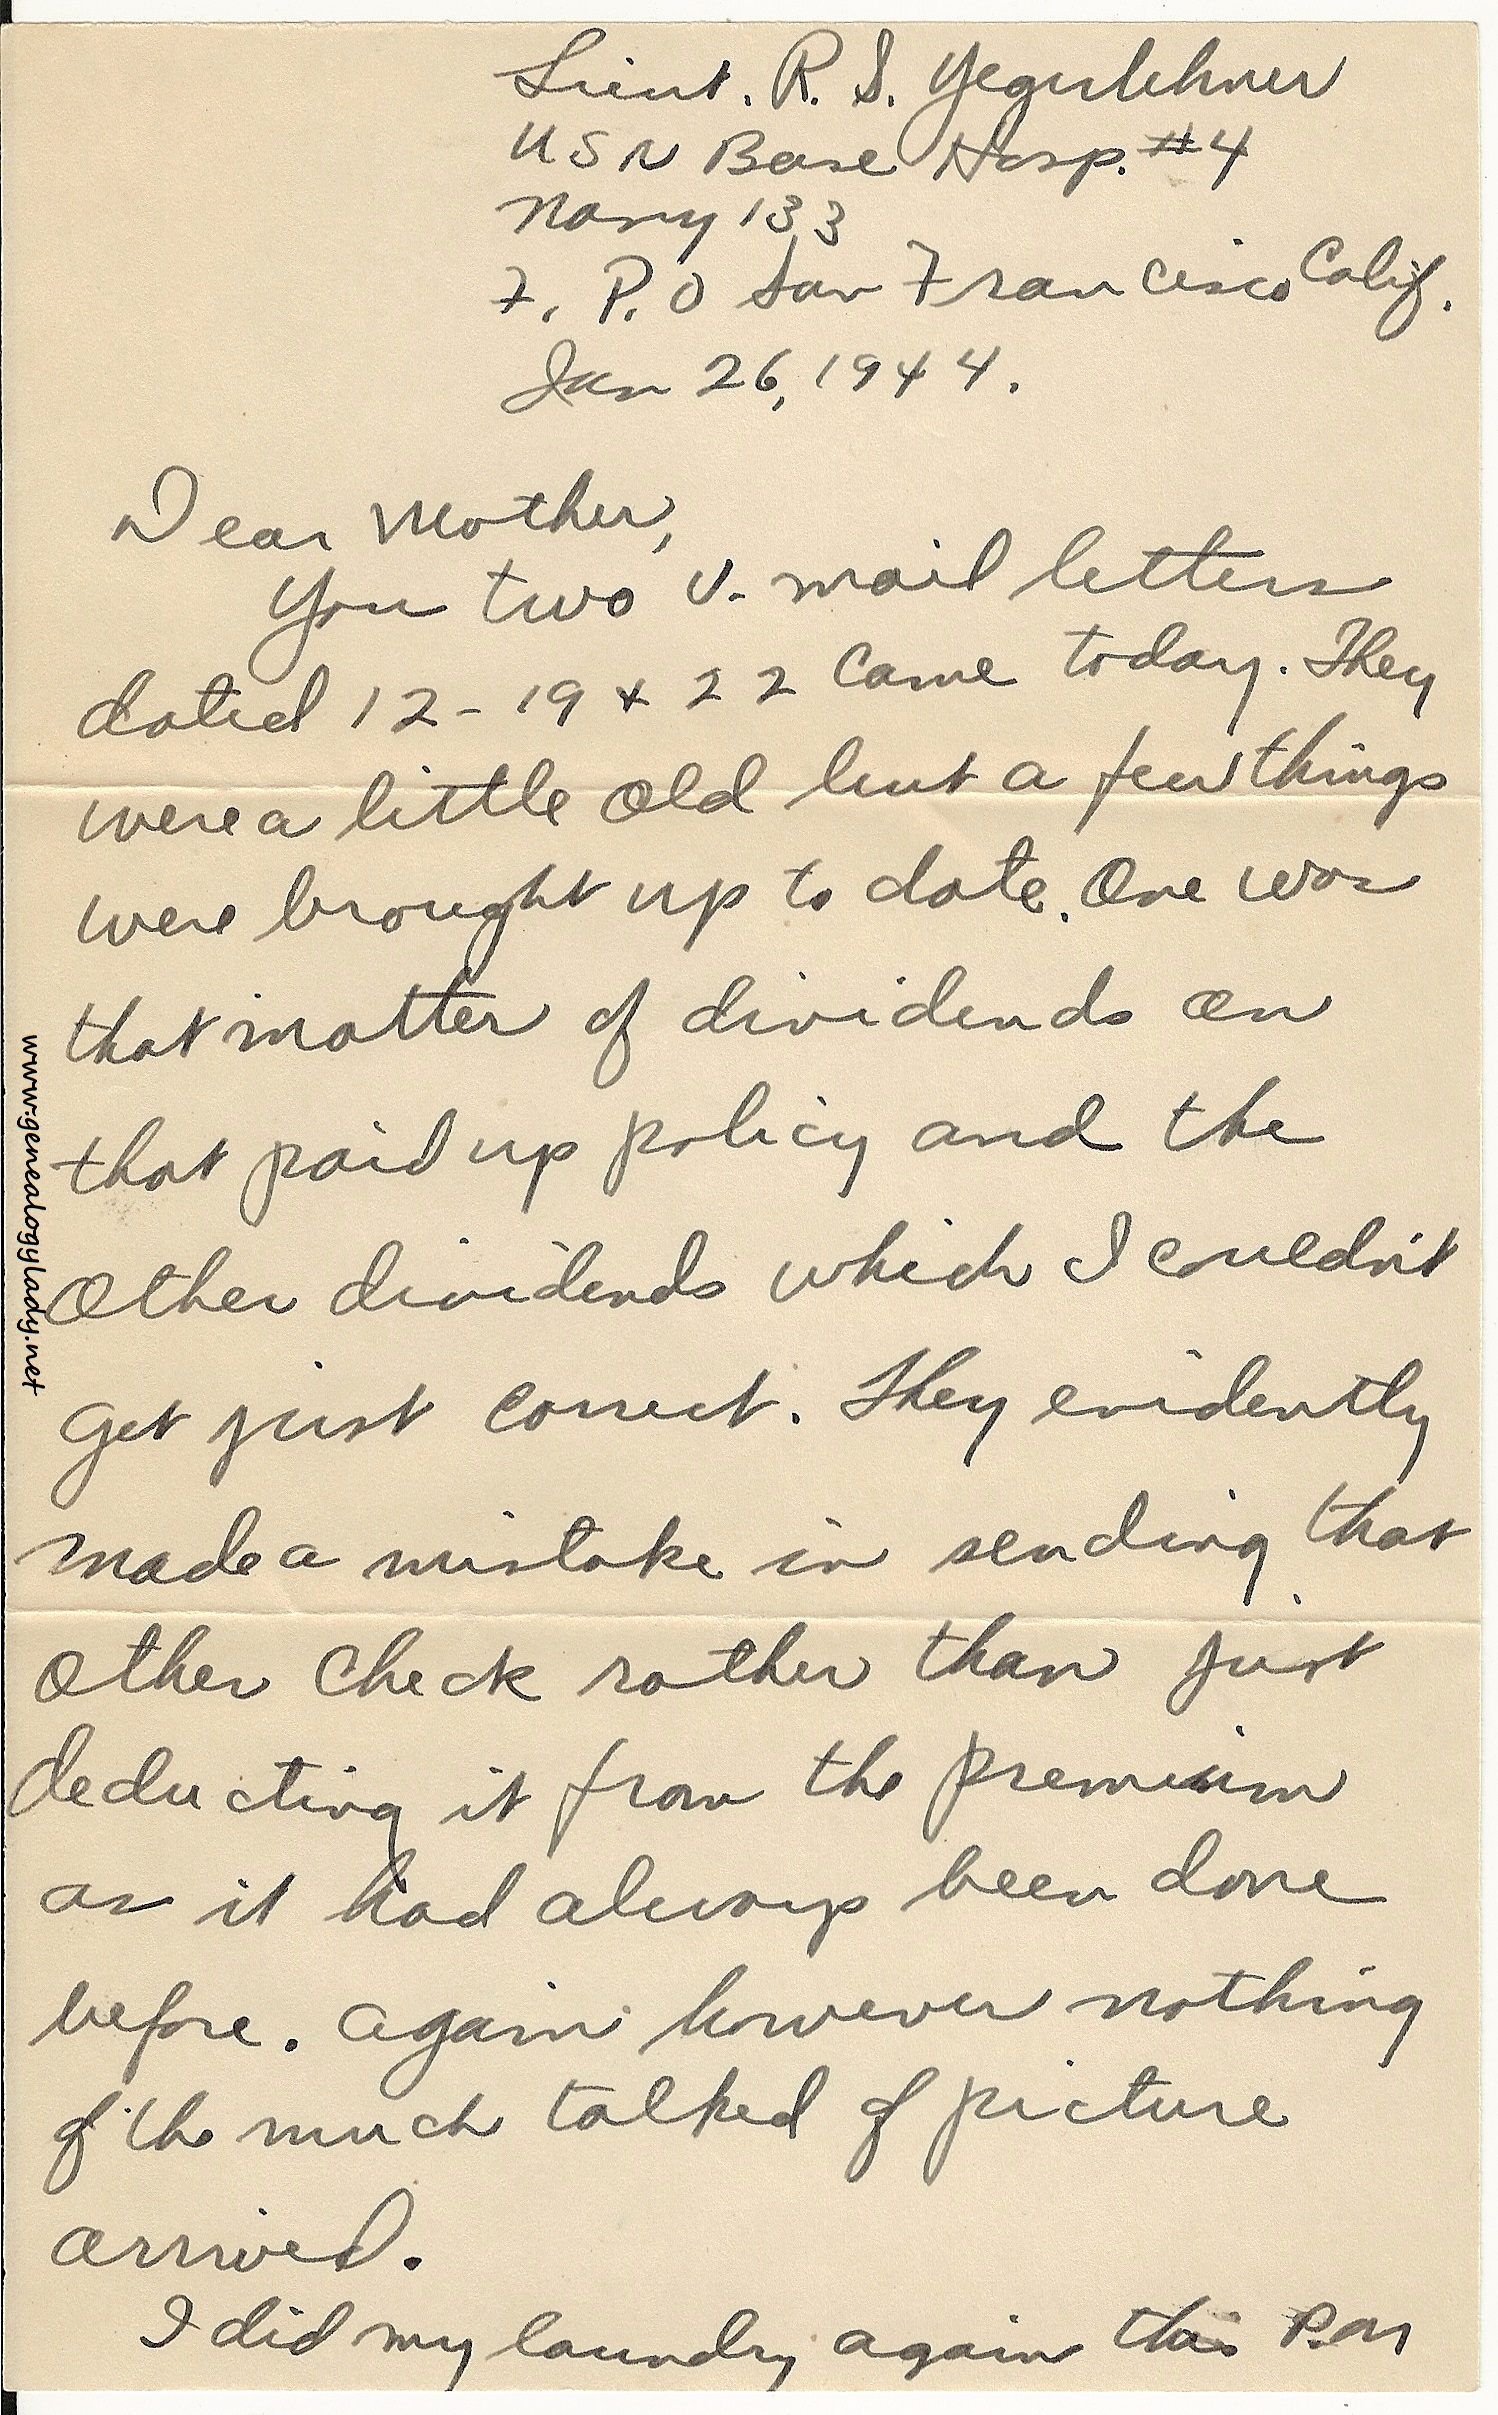 Lieut. R. S. Yegerlehner
USN Base Hosp. #4
Navy 133
F. P. O San Francisco Calif.
Jan 26, 1944.
Dear Mother,
You two V. mail letters
dated 12-19 + 22 came today. They
were a little old but a few things
were brought up to date. One was
that matter of dividends on
that paid up policy and the
other dividends which I couldn't
get just correct. They evidently
made a mistake in sending that
other check rather than just
deducting it from the premium
as it had always been done
before. Again however nothing
of the much talked of picture
arrived.
I did my laundry again this P.M
www.genealogylady.net